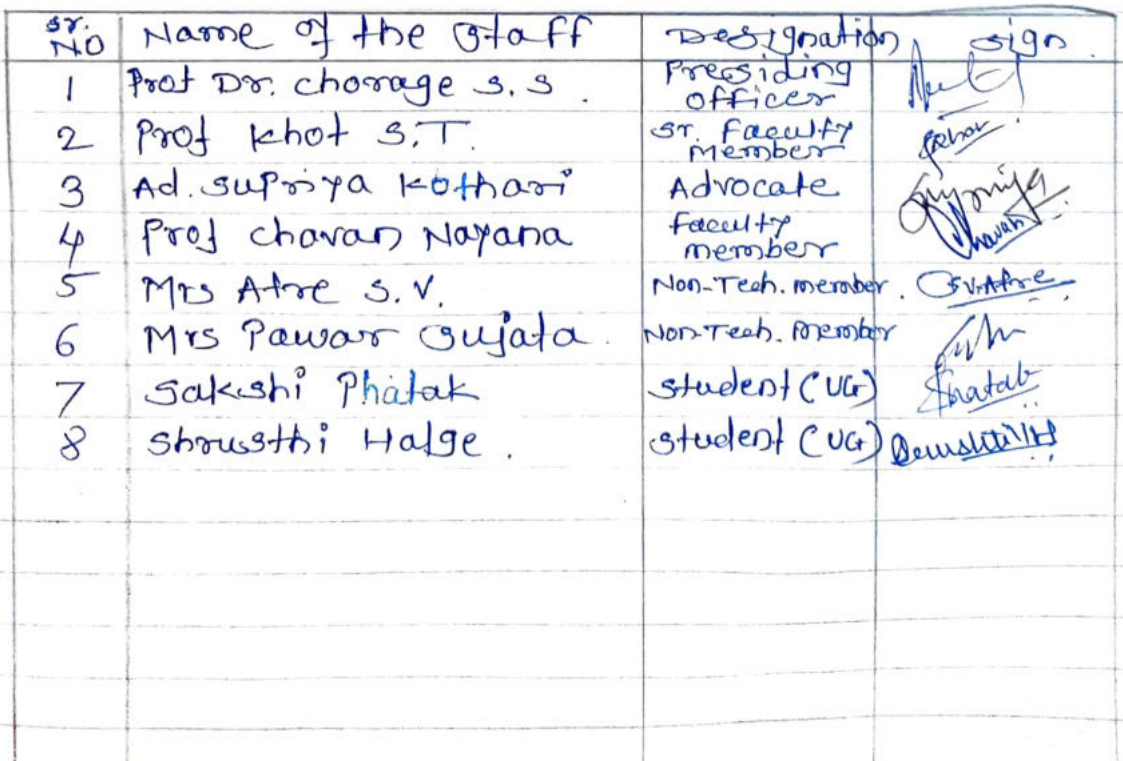 Sr. NO Name of the Staff Designation sign
1 Prof Dr. Chorage S.S. Presiding officer
2 Prof Khot S.T. Sr. Faculty Member
3 Ad. Supriya Kothari Advocate Supriya
4 Prof Chavan Nayana Faculty member Chavan
5 Mrs Atre S.V. Non-Tech. member. S.V.Atre
6 Mrs Pawar Sujata. Non-Tech. Member
7 Sakshi Phatak Student (UG) Phatak
8 Shrusthi Halge. Student (UG)